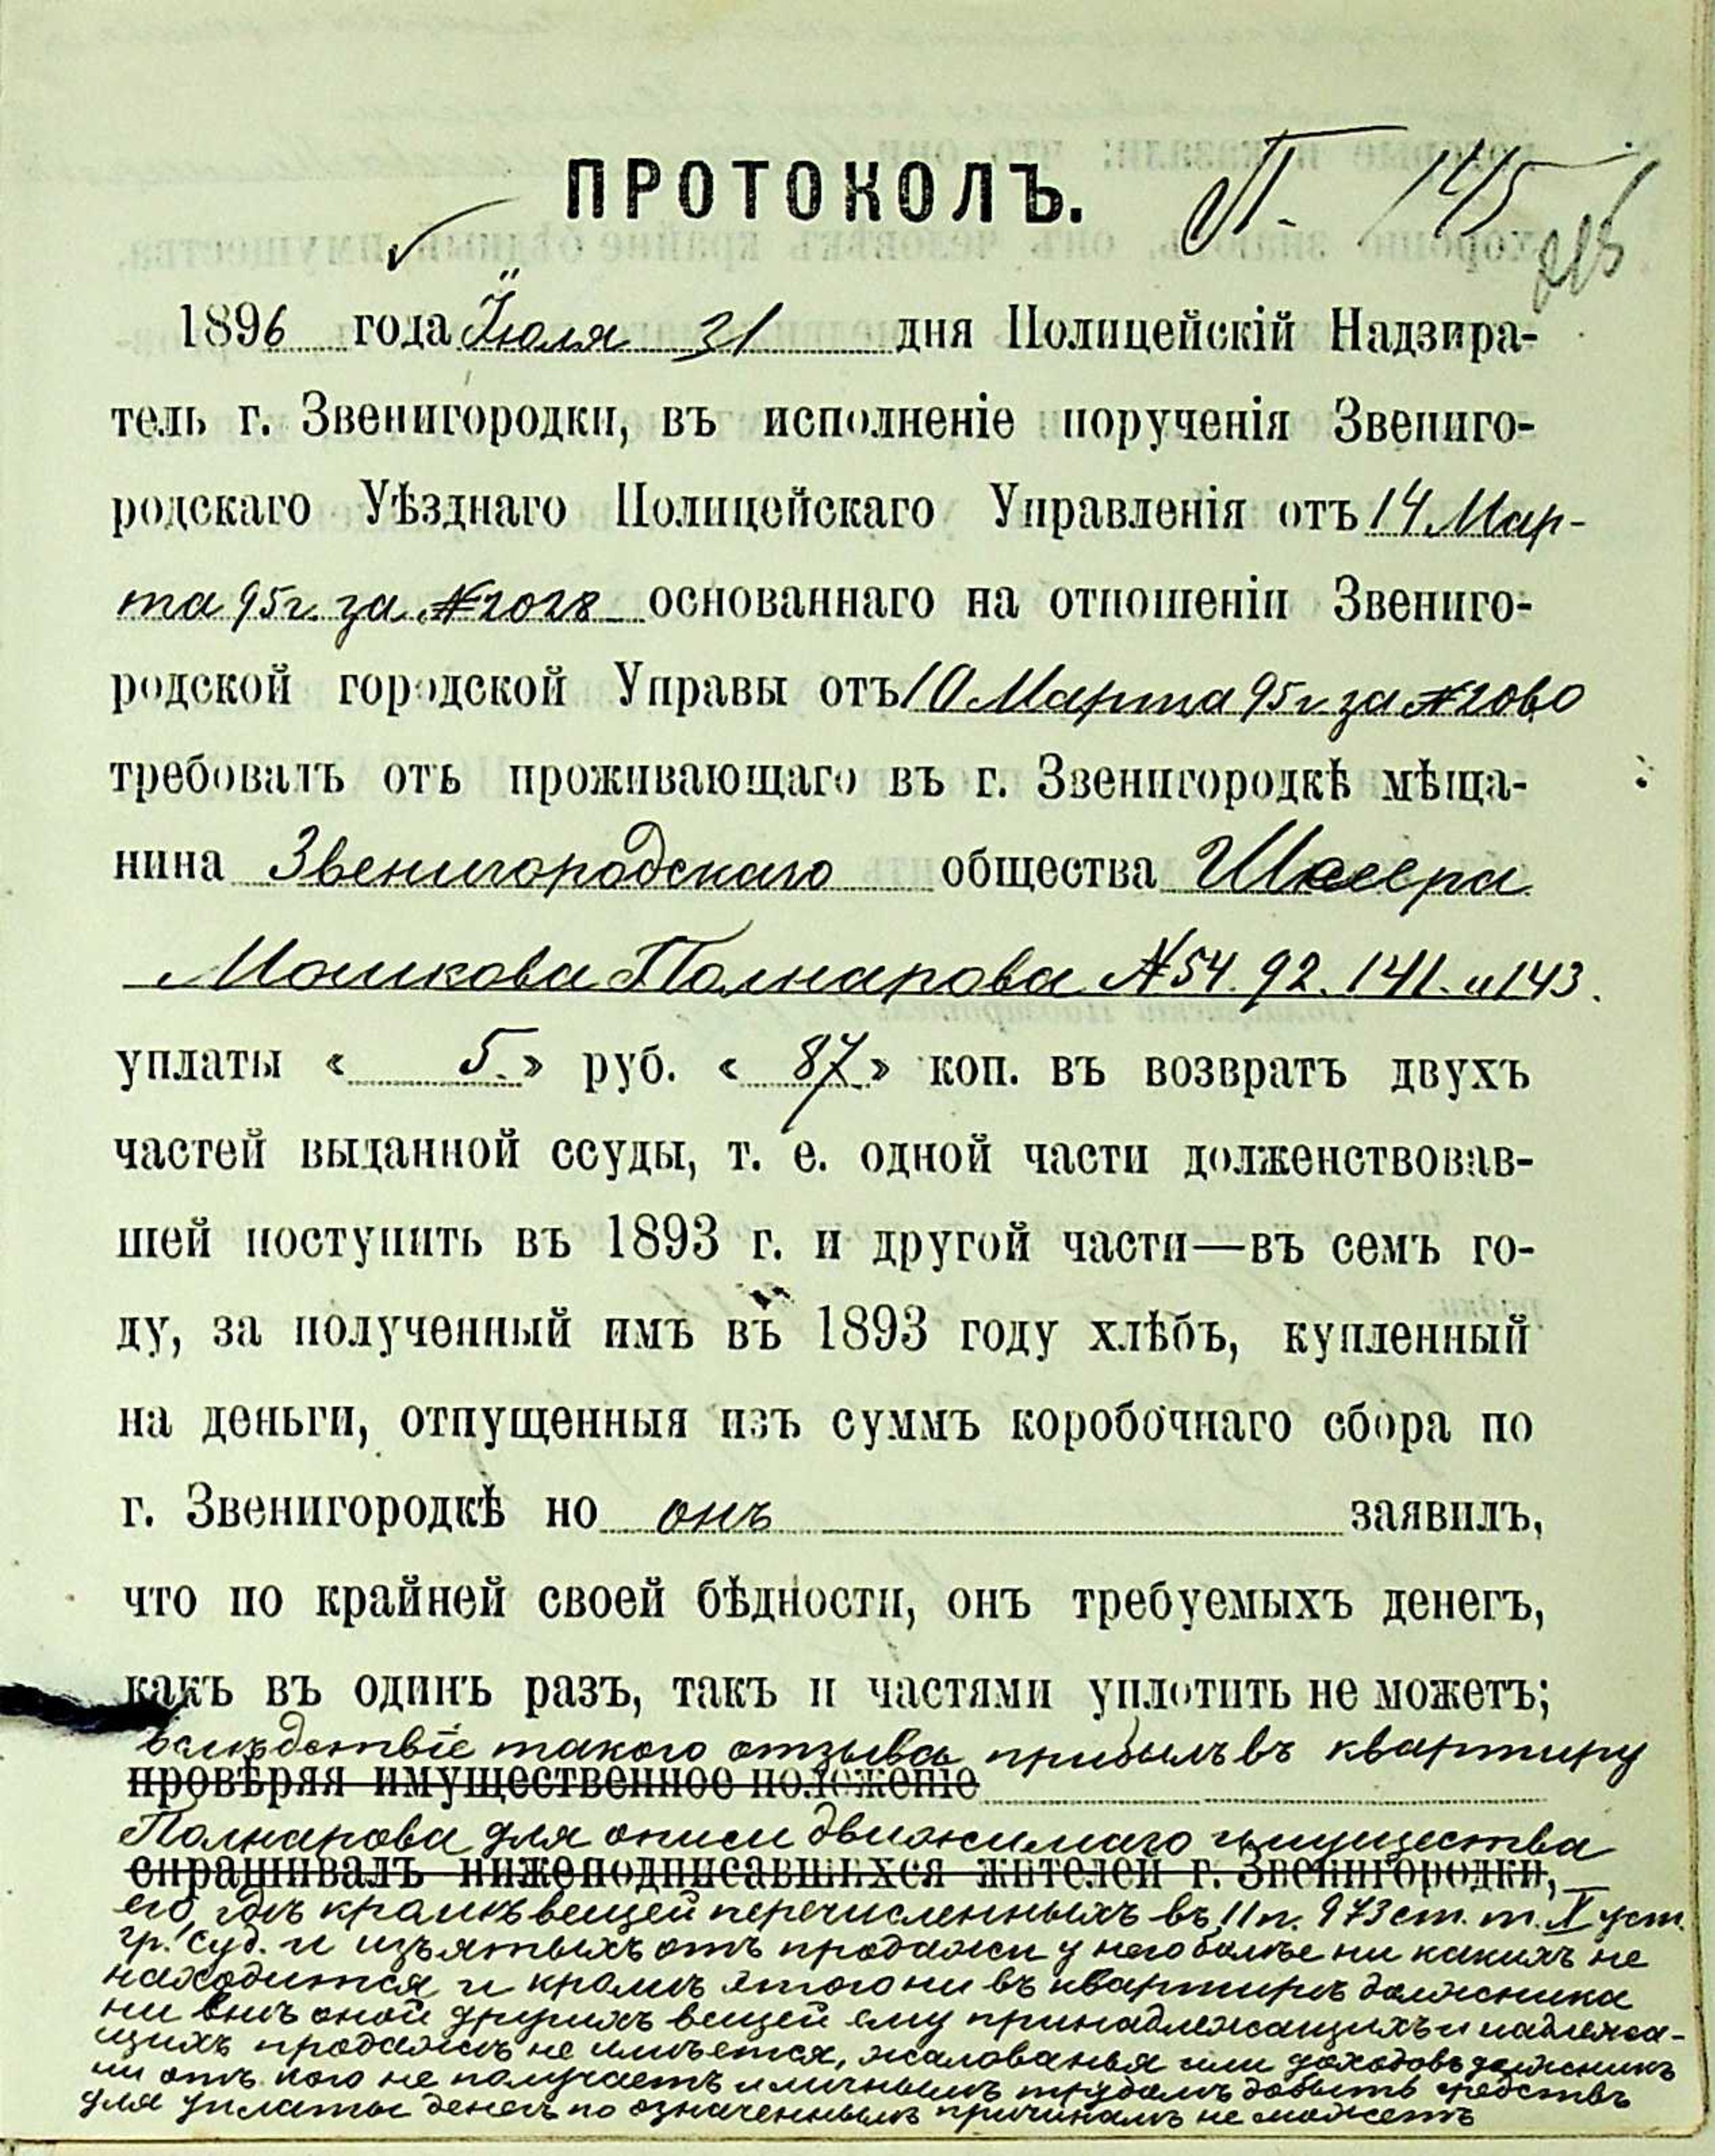 ПРОТОКОЛЪ. П. 145
215
1896 года Іюля 31 дня Полицейскій Надзира-
тель г. Звенигородки, въ исполненіе порученія Звениго-
родскаго Уѣзднаго Полицейскаго Управленія отъ 14 Мар-
та 95 г. за № 2028 основаннаго на отношеніи Звениго-
родской городской Управы отъ 10 Марта 95 г за № 2060
требовалъ отъ проживающаго въ г. Звенигородкѣ мѣща-
нина Звенигородскаго общества
Мошкова Полнарова № 54. 92. 141. и 143.
уплаты « 5. » руб. « 87 » коп. въ возвратъ двухъ
частей выданной ссуды, т. е. одной части долженствовав-
шей поступить въ 1893 г. и другой части—въ семъ го-
ду, за полученный имъ въ 1893 году хлѣбъ, купленный
на деньги, отпущенныя изъ суммъ коробочнаго сбора по
г. Звенигородкѣ но онъ заявилъ,
что по крайней своей бѣдности, онъ требуемыхъ денегъ,
какъ въ одинъ разъ, такъ и частями уплотить не можетъ;
вслѣдствіе такого отзыва прибылъ въ квартиру
провѣряя имущественное положеніе
Полнарова для описи движимаго имущества
спрашивалъ нижеподписавшихся жителей г. Звенигородки,
его, гдѣ кромѣ вещей перечисленныхъ въ 11 п. 973 ст. т. X уст.
гр. суд. и изъятыхъ отъ продажи у него болѣе ни какихъ не
находится и кромѣ этого ни въ квартирѣ должника
ни внѣ оной другихъ вещей ему принадлежащихъ и надлежа-
щихъ продажѣ не имѣется, жалованья или доходовъ должникъ
ни отъ кого не получаетъ и личнымъ трудомъ добыть средствъ
для уплаты денегъ по означеннымъ причинамъ не можетъ